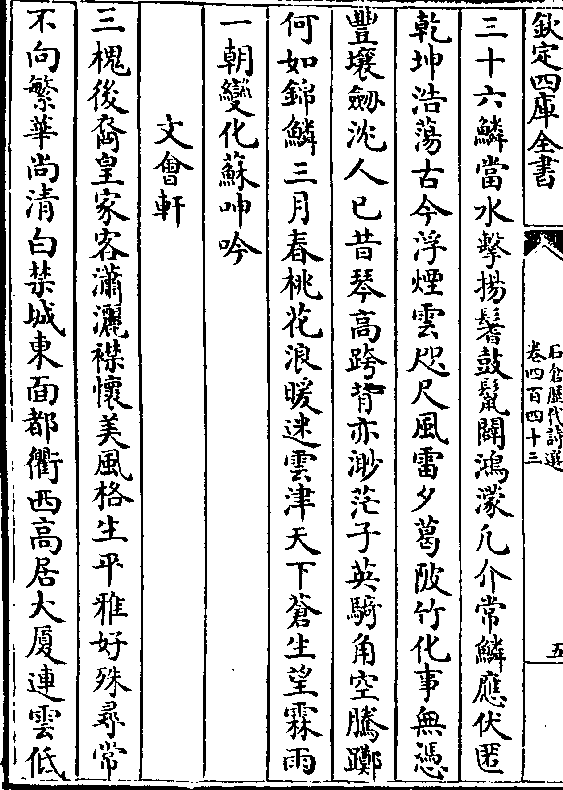 欽定四庫全書
石倉歷代詩選
卷四百四十三
五
三十六鱗當水擊揚鬐鼓鬣開鴻濛凡介常鱗應伏匿
乾坤浩蕩古今浮煙雲咫尺風雷夕葛陂竹化事無憑
豐壤劒沈人已昔琴高跨背亦渺茫子英騎角空騰躑
何如錦鱗三月春桃花浪暖迷雲津天下蒼生望霖雨
一朝變化蘇呻吟
文會軒
三槐後裔皇家客瀟灑襟懷美風格生平雅好殊尋常
不向繁華尚清白禁城東面都衢西高居大厦連雲低